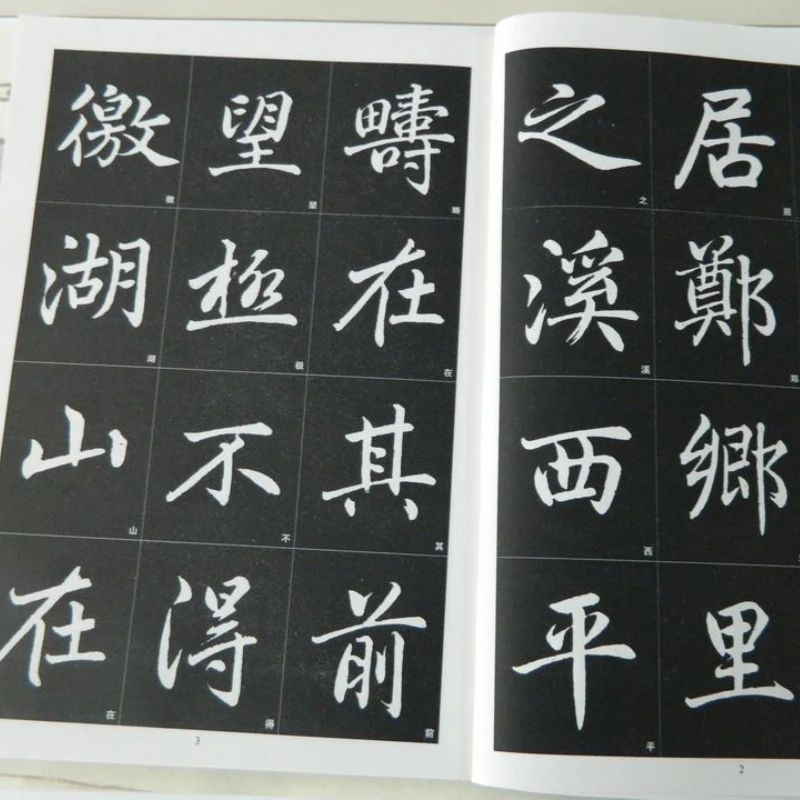 居鄭鄉里
居
郑
之溪西平
之
溪
西
平
2
疇在其前
在
其
前
望極不得
望
极
不
得
徼湖山在
湖
山
在
3